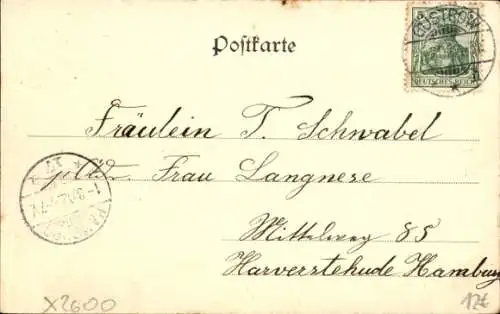 Postkarte
GÜSTROW
DEUTSCHES REICH
Fräulein T. Schwabel
Frau Langnese
Mittelweg 85
Harverstehude Hamburg
X2600
12€